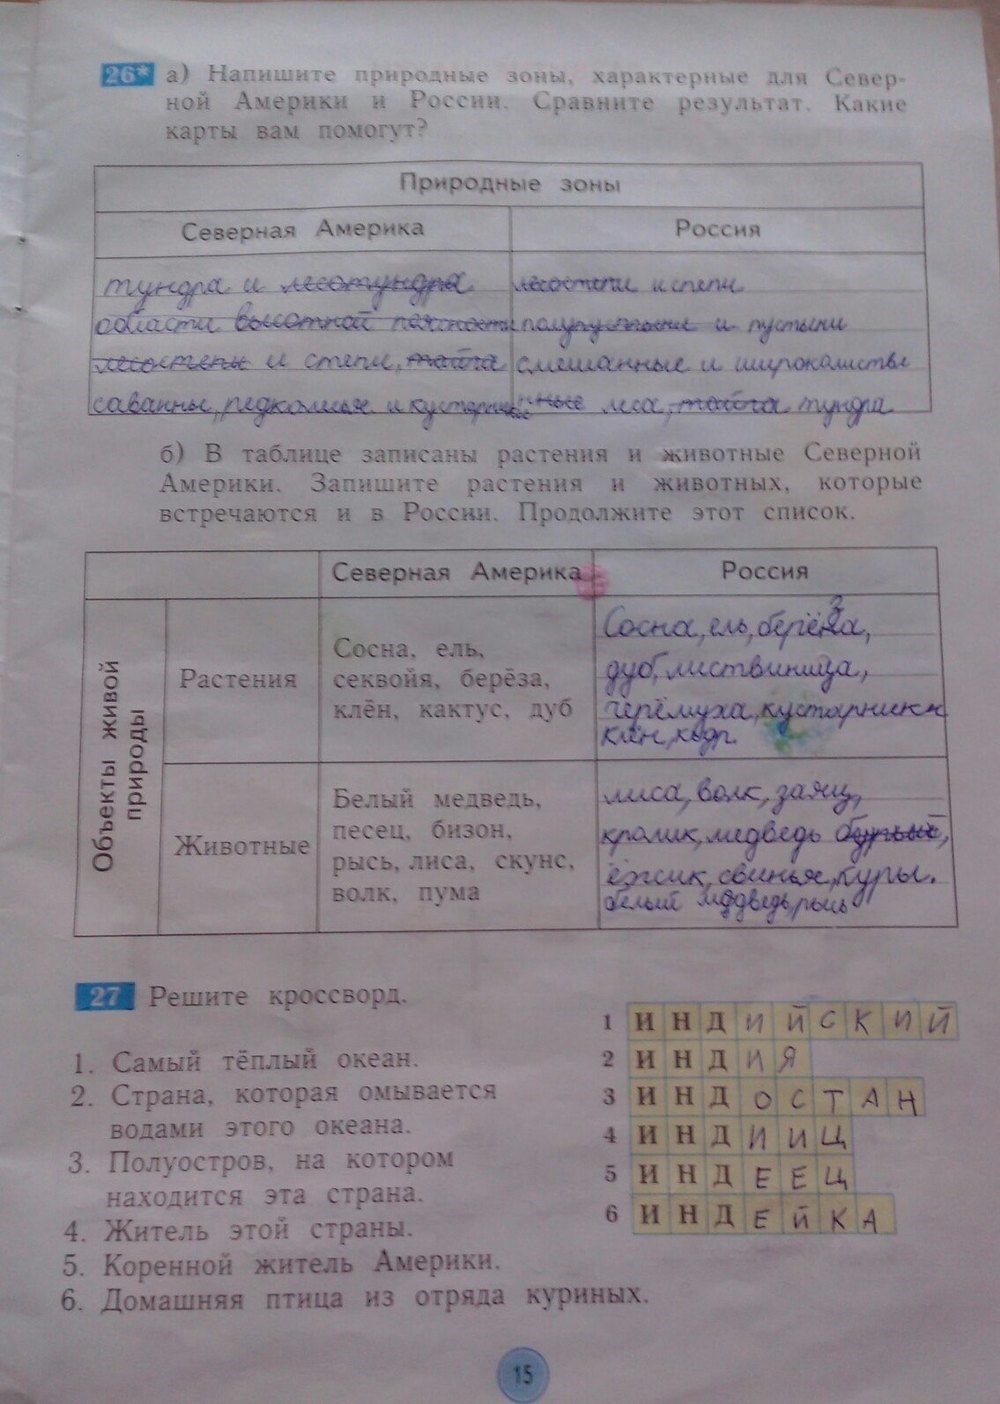 26* а) Напишите природные зоны, характерные для Север-
ной Америки и России. Сравните результат. Какие
карты вам помогут?
Природные зоны
Северная Америка Россия
тундра и лесотундра лесостепи и степи
области высотной поясности полупустыни и пустыни
лесостепи и степи, тайга смешанные и широколистве
саванны, редколесья и кустарники нные леса, тайга тундра
б) В таблице записаны растения и животные Северной
Америки. Запишите растения и животных, которые
встречаются и в России. Продолжите этот список.
Северная Америка Россия
Объекты живой природы
Растения
Сосна, ель,
секвойя, берёза,
клён, кактус, дуб
Сосна, ель, берёза,
дуб, лиственица,
черёмуха, кустарники
клён, кедр.
Животные
Белый медведь,
песец, бизон,
рысь, лиса, скунс,
волк, пума
лиса, волк, заяц,
кролик, медведь бурый,
ёжик, свинья, куры.
белый медведь, рысь
27 Решите кроссворд.
1. Самый тёплый океан.
2. Страна, которая омывается
водами этого океана.
3. Полуостров, на котором
находится эта страна.
4. Житель этой страны.
5. Коренной житель Америки.
6. Домашняя птица из отряда куриных.
1 ИНДИЙСКИЙ
2 ИНДИЯ
3 ИНДОСТАН
4 ИНДИИЦ
5 ИНДЕЕЦ
6 ИНДЕЙКА
15